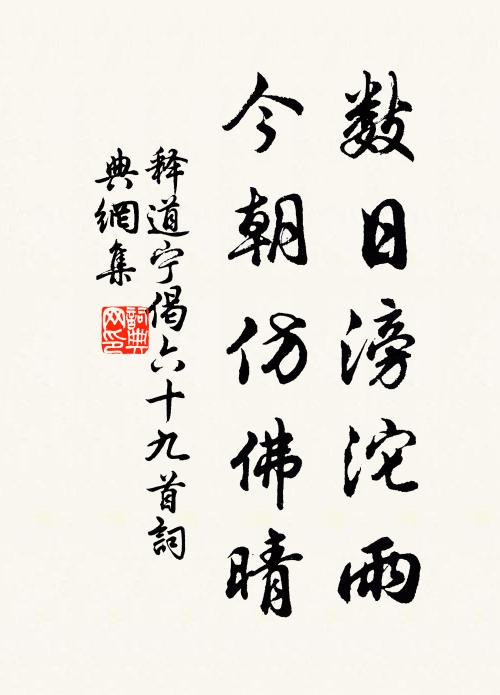 数日滂沱雨
今朝仿佛晴
释道宁偈六十九首詞
典網集
詞典
网印